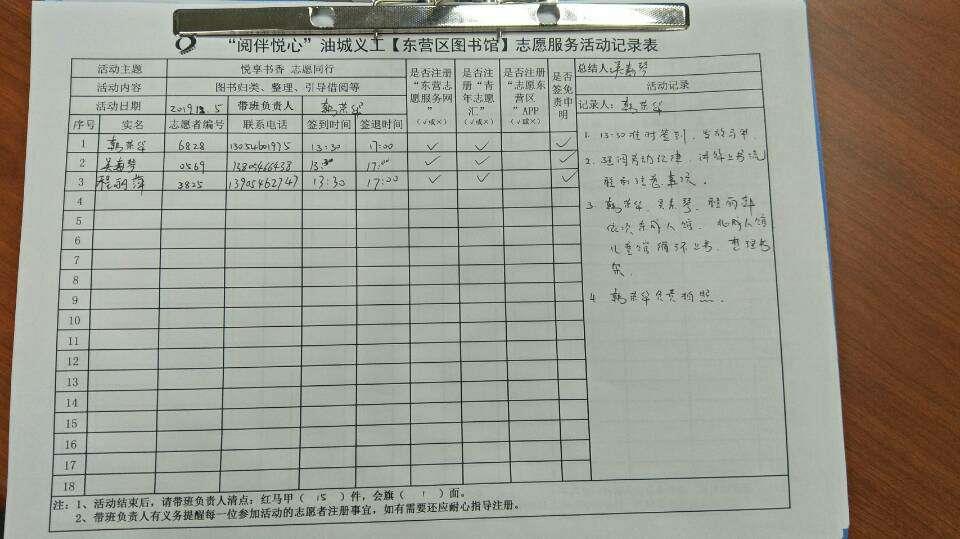 “阅伴悦心”油城义工【东营区图书馆】志愿服务活动记录表
活动主题 悦享书香 志愿同行 是否注册“东营志愿服务网”（√或×） 是否注册“青年志愿汇”（√或×） 是否注册“志愿东营区”APP（√或×） 是否签免责申明 总结人：吴寿琴
活动内容 图书归类、整理、引导借阅等 活动记录
活动日期 2019. 5 带班负责人 韩荣华 记录人：韩荣华
序号 实名 志愿者编号 联系电话 签到时间 签退时间
1 韩荣华 6828 13054601975 13:30 17:00 √ √ √
2 吴寿琴 0569 13:30 17:00 √ √ √
3 程丽萍 3825 13905462747 13:30 17:00 √ √ √
4
5
6
7
8
9
10
11
12
13
14
15
16
17
18
1. 13:30准时签到、发放马甲.
2. 强调劳动纪律，讲解上书流
程和注意事项。
3. 韩荣华、吴寿琴、程丽萍
依次东成人馆、北成人馆
儿童馆循环上书、整理书
架
4. 韩荣华负责拍照.
注：1、活动结束后，请带班负责人清点：红马甲（ 15 ）件，会旗（ 1 ）面。
2、带班负责人有义务提醒每一位参加活动的志愿者注册事宜，如有需要还应耐心指导注册。